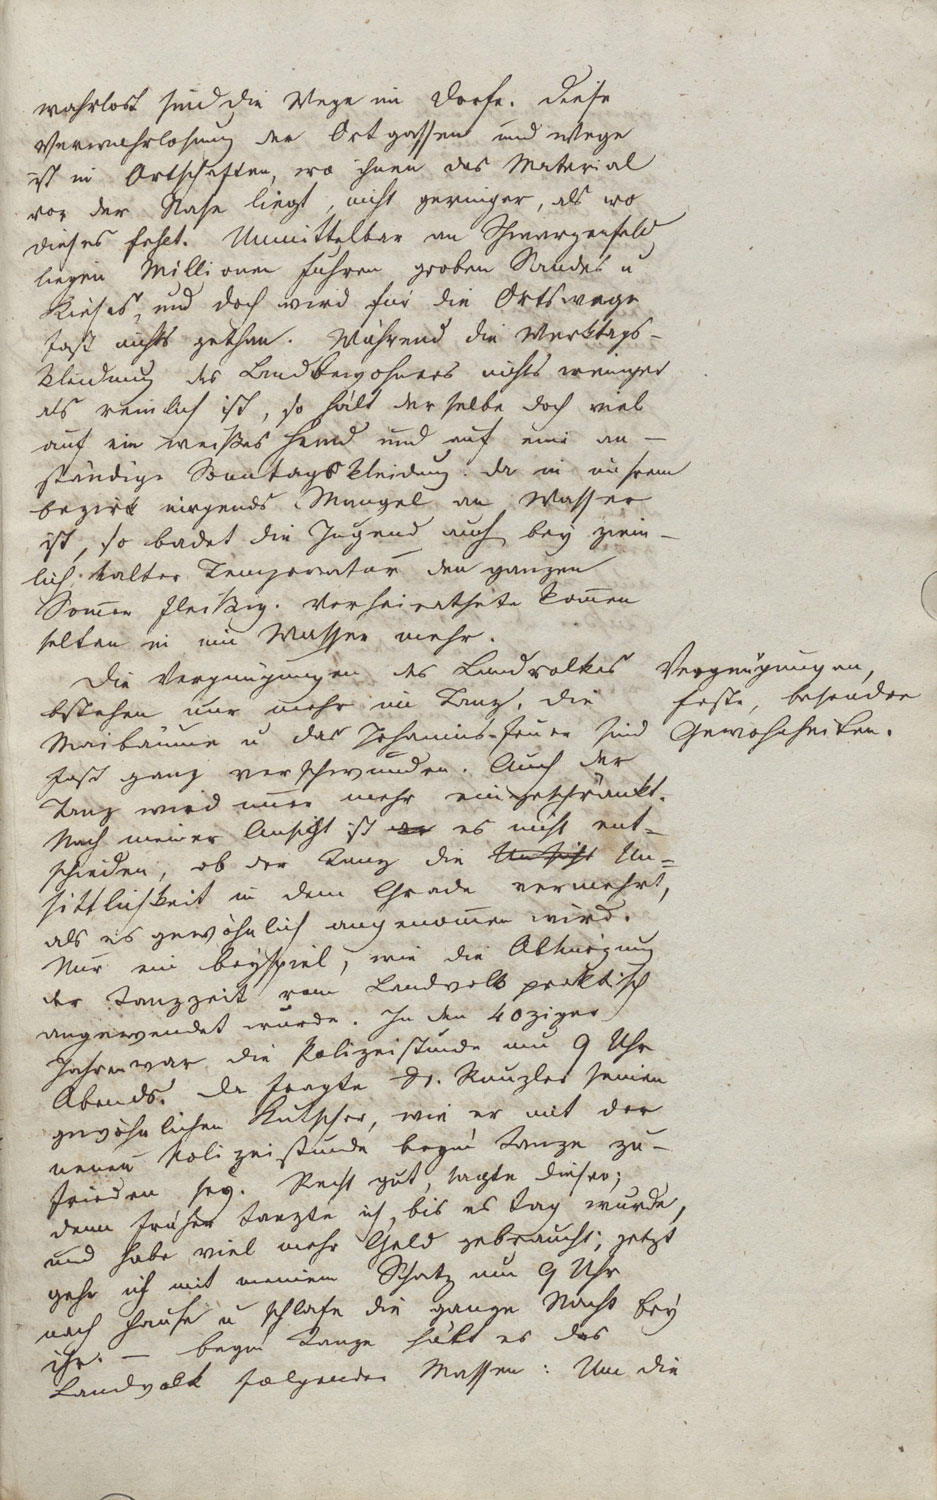 wahrlost sind die Wege im Dorfe. Diese
Verwahrlosung der Ortgassen und Wege
ist in Ortschaften, wo ihnen das Material
vor der Nase liegt, nicht geringer, als wo
dieses fehlt. Unmittelbar an Schwarzenfeld
liegen Millionen Fuhren groben Sandes u
Kieses, und doch wird für die Ortswege
fast nichts gethan. Während die Werktags-
kleidung des Landbewohners nichts weniger
als reinlich ist, so hält derselbe doch viel
auf ein weißes Hemd und auf eine an-
ständige Sonntagskleidung. Da in unserem
Bezirk nirgends Mangel an Wasser
ist, so badet die Jugend auch bey ziem-
lich kalter Temperatur den ganzen
Som̄er fleißig. Verheirathete kom̄en
selten in ein Wasser mehr.
Die Vergnügungen des Landvolkes
bstehen nur mehr im Tanz, die
Maibäume u das Johannis-Feuer sind
fast ganz verschwunden. Auch der
Tanz wird im̄er mehr eingeschränkt.
Nach meiner Ansicht ist es nicht ent-
schieden, ob der Tanz die Un=
sittlichkeit in dem Grade vermehrt,
als es gewöhnlich angenom̄en wird.
Nur ein Beyspiel, wie die Abkürzung
der Tanzzeit vom Landvolk praktisch
angewendet wurde. In den 40ziger
Jahren war die Polizeistunde um 9 Uhr
Abends. Da fragte Dr. Rauzler seinen
gewöhnlichen Kutscher, wie er mit der
neuen Polizeistunde beym Tanze zu-
frieden sey. Recht gut, sagte dieser;
denn früher tanzte ich, bis es Tag wurde,
und habe viel mehr Geld gebraucht; jetzt
gehe ich mit meinem Schatz um 9 Uhr
nach Hause u schlafe die ganze Nacht bey
ihr. — beym Tanze hält es das
Landvolk folgender Massen: Um die
Vergnügungen,
Feste, besondere
Gewohnheiten.